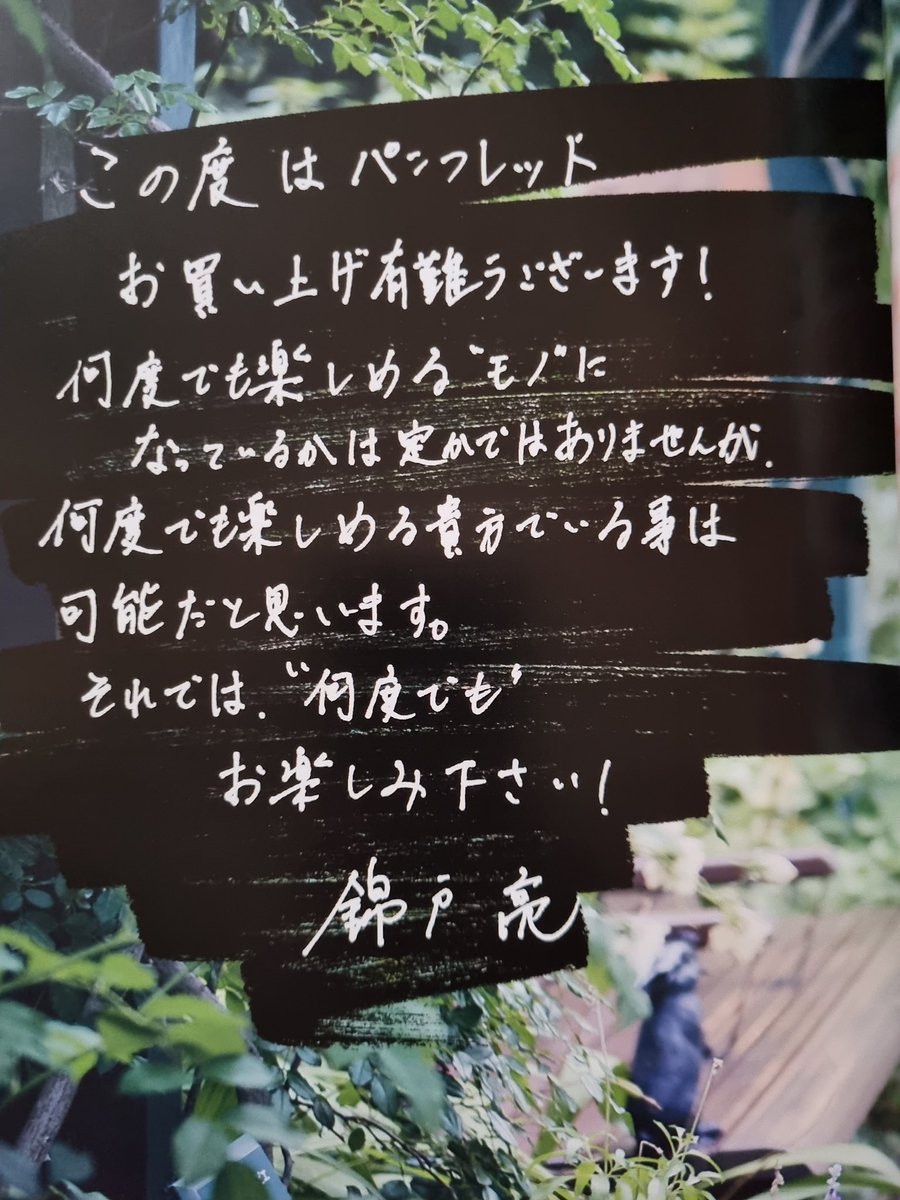 この度はパンフレッド
お買い上げ有難うございます!
何度でも楽しめる"モノ"に
なっているかは定かではありませんが、
何度でも楽しめる貴方でいる事は
可能だと思います。
それでは、"何度でも"
お楽しみ下さい!
錦戸亮